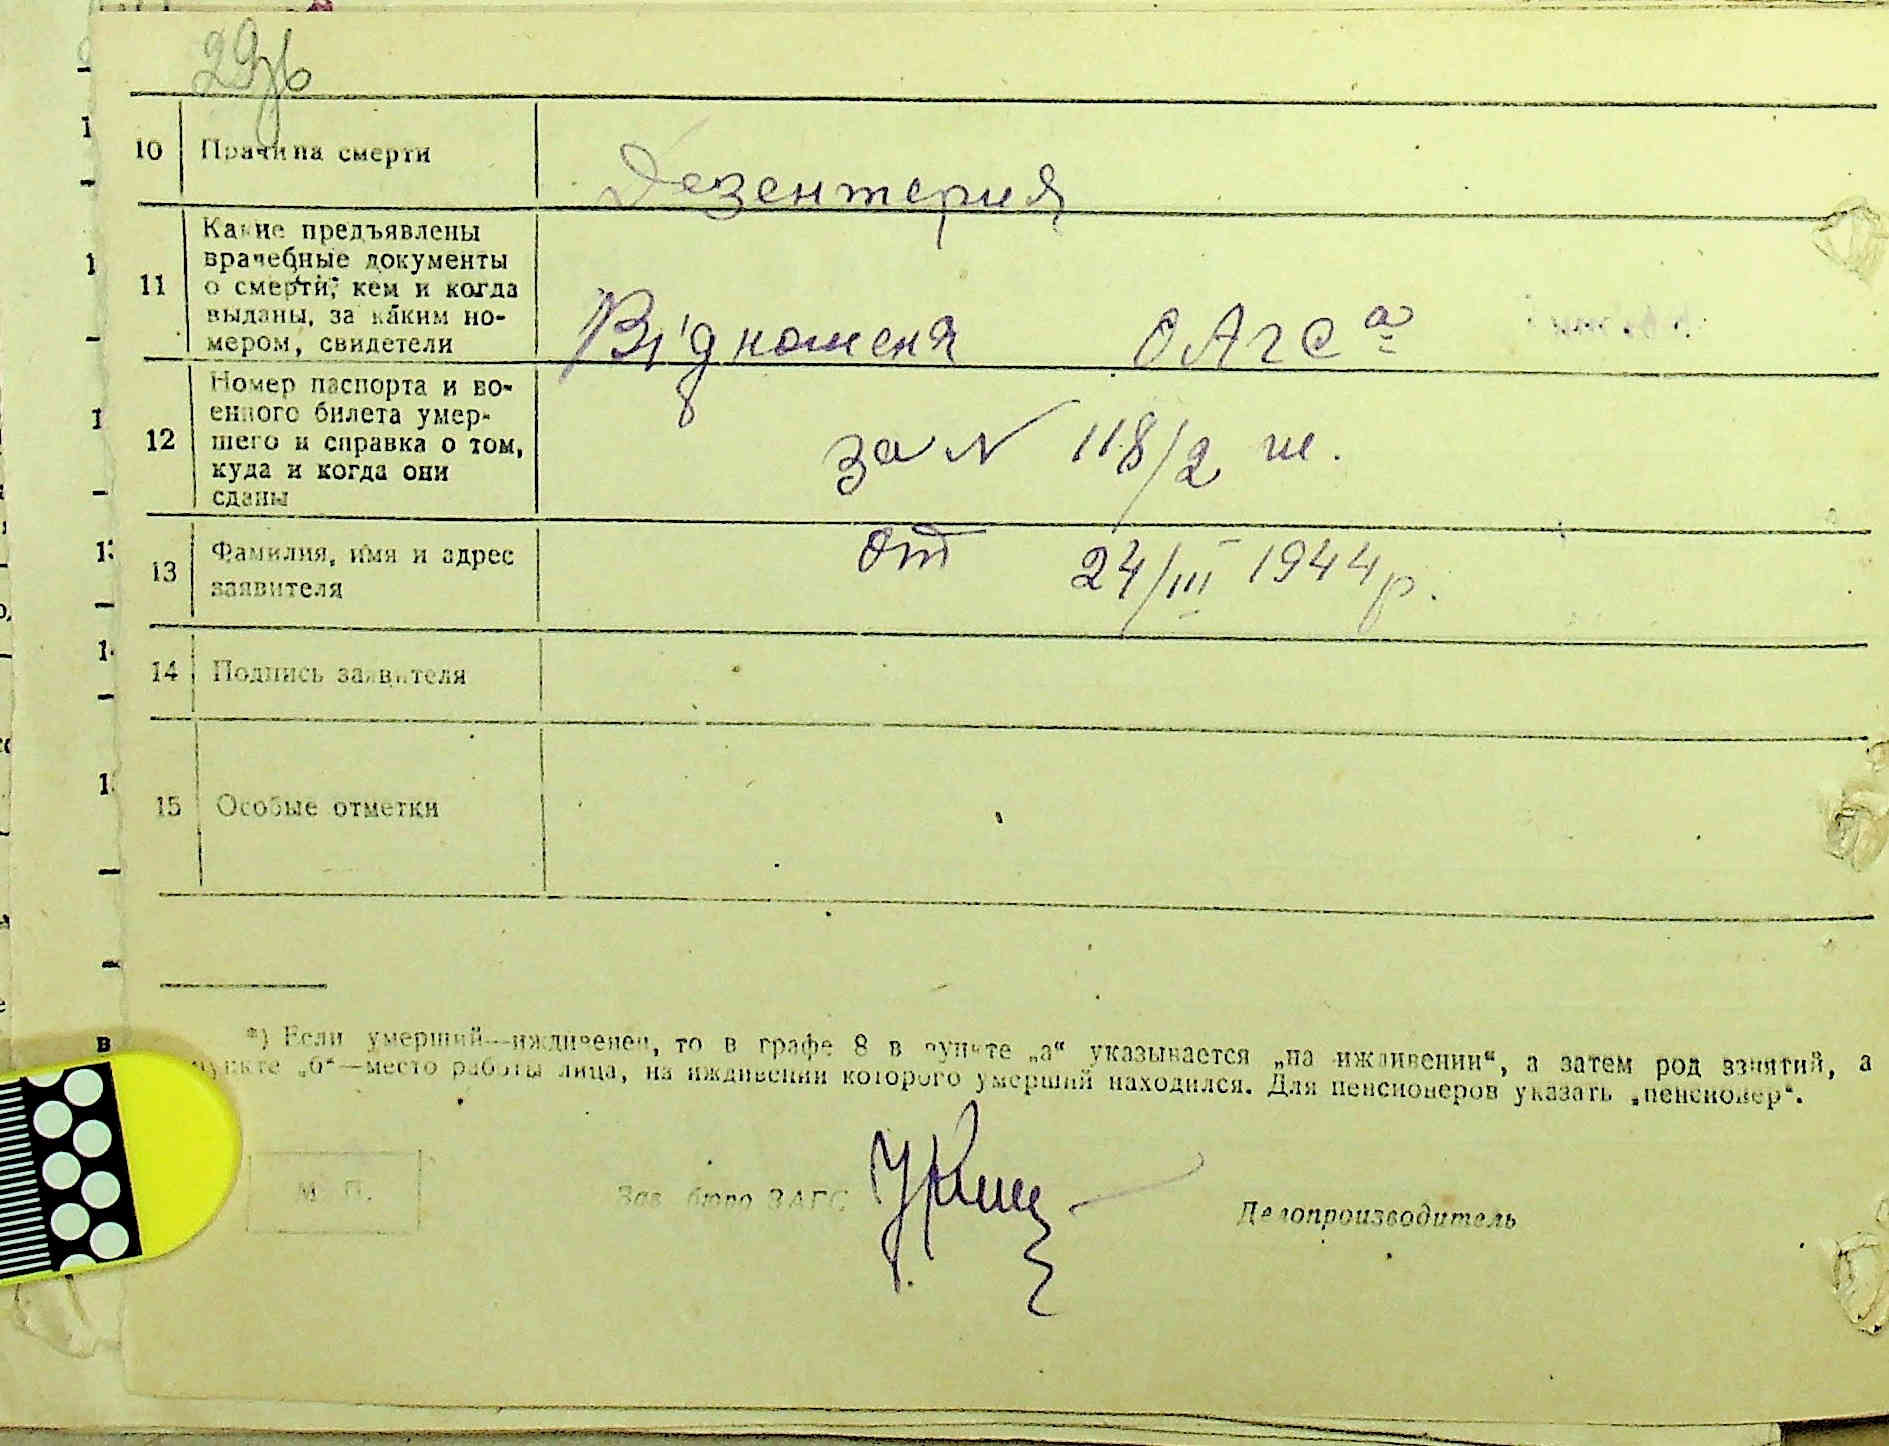 29зв
10 Причина смерти
Дезентерия
11 Какие предъявлены
врачебные документы
о смерти, кем и когда
выданы, за каким но-
мером, свидетели
Відношеня ОАГСа
12 Номер паспорта и во-
енного билета умер-
шего и справка о том,
куда и когда они
сданы
за N 118/2 ш.
13 Фамилия, имя и адрес
заявителя
от 24/III 1944р.
14 Подпись заявителя
15 Особые отметки
*) Если умерший—иждивенец, то в графе 8 в пункте „а“ указывается „на иждивении“, а затем род занятий, а
пункте „б“—место работы лица, на иждивении которого умерший находился. Для пенсионеров указать „пенсионер“.
М. П. Зав. бюро ЗАГС Делопроизводитель